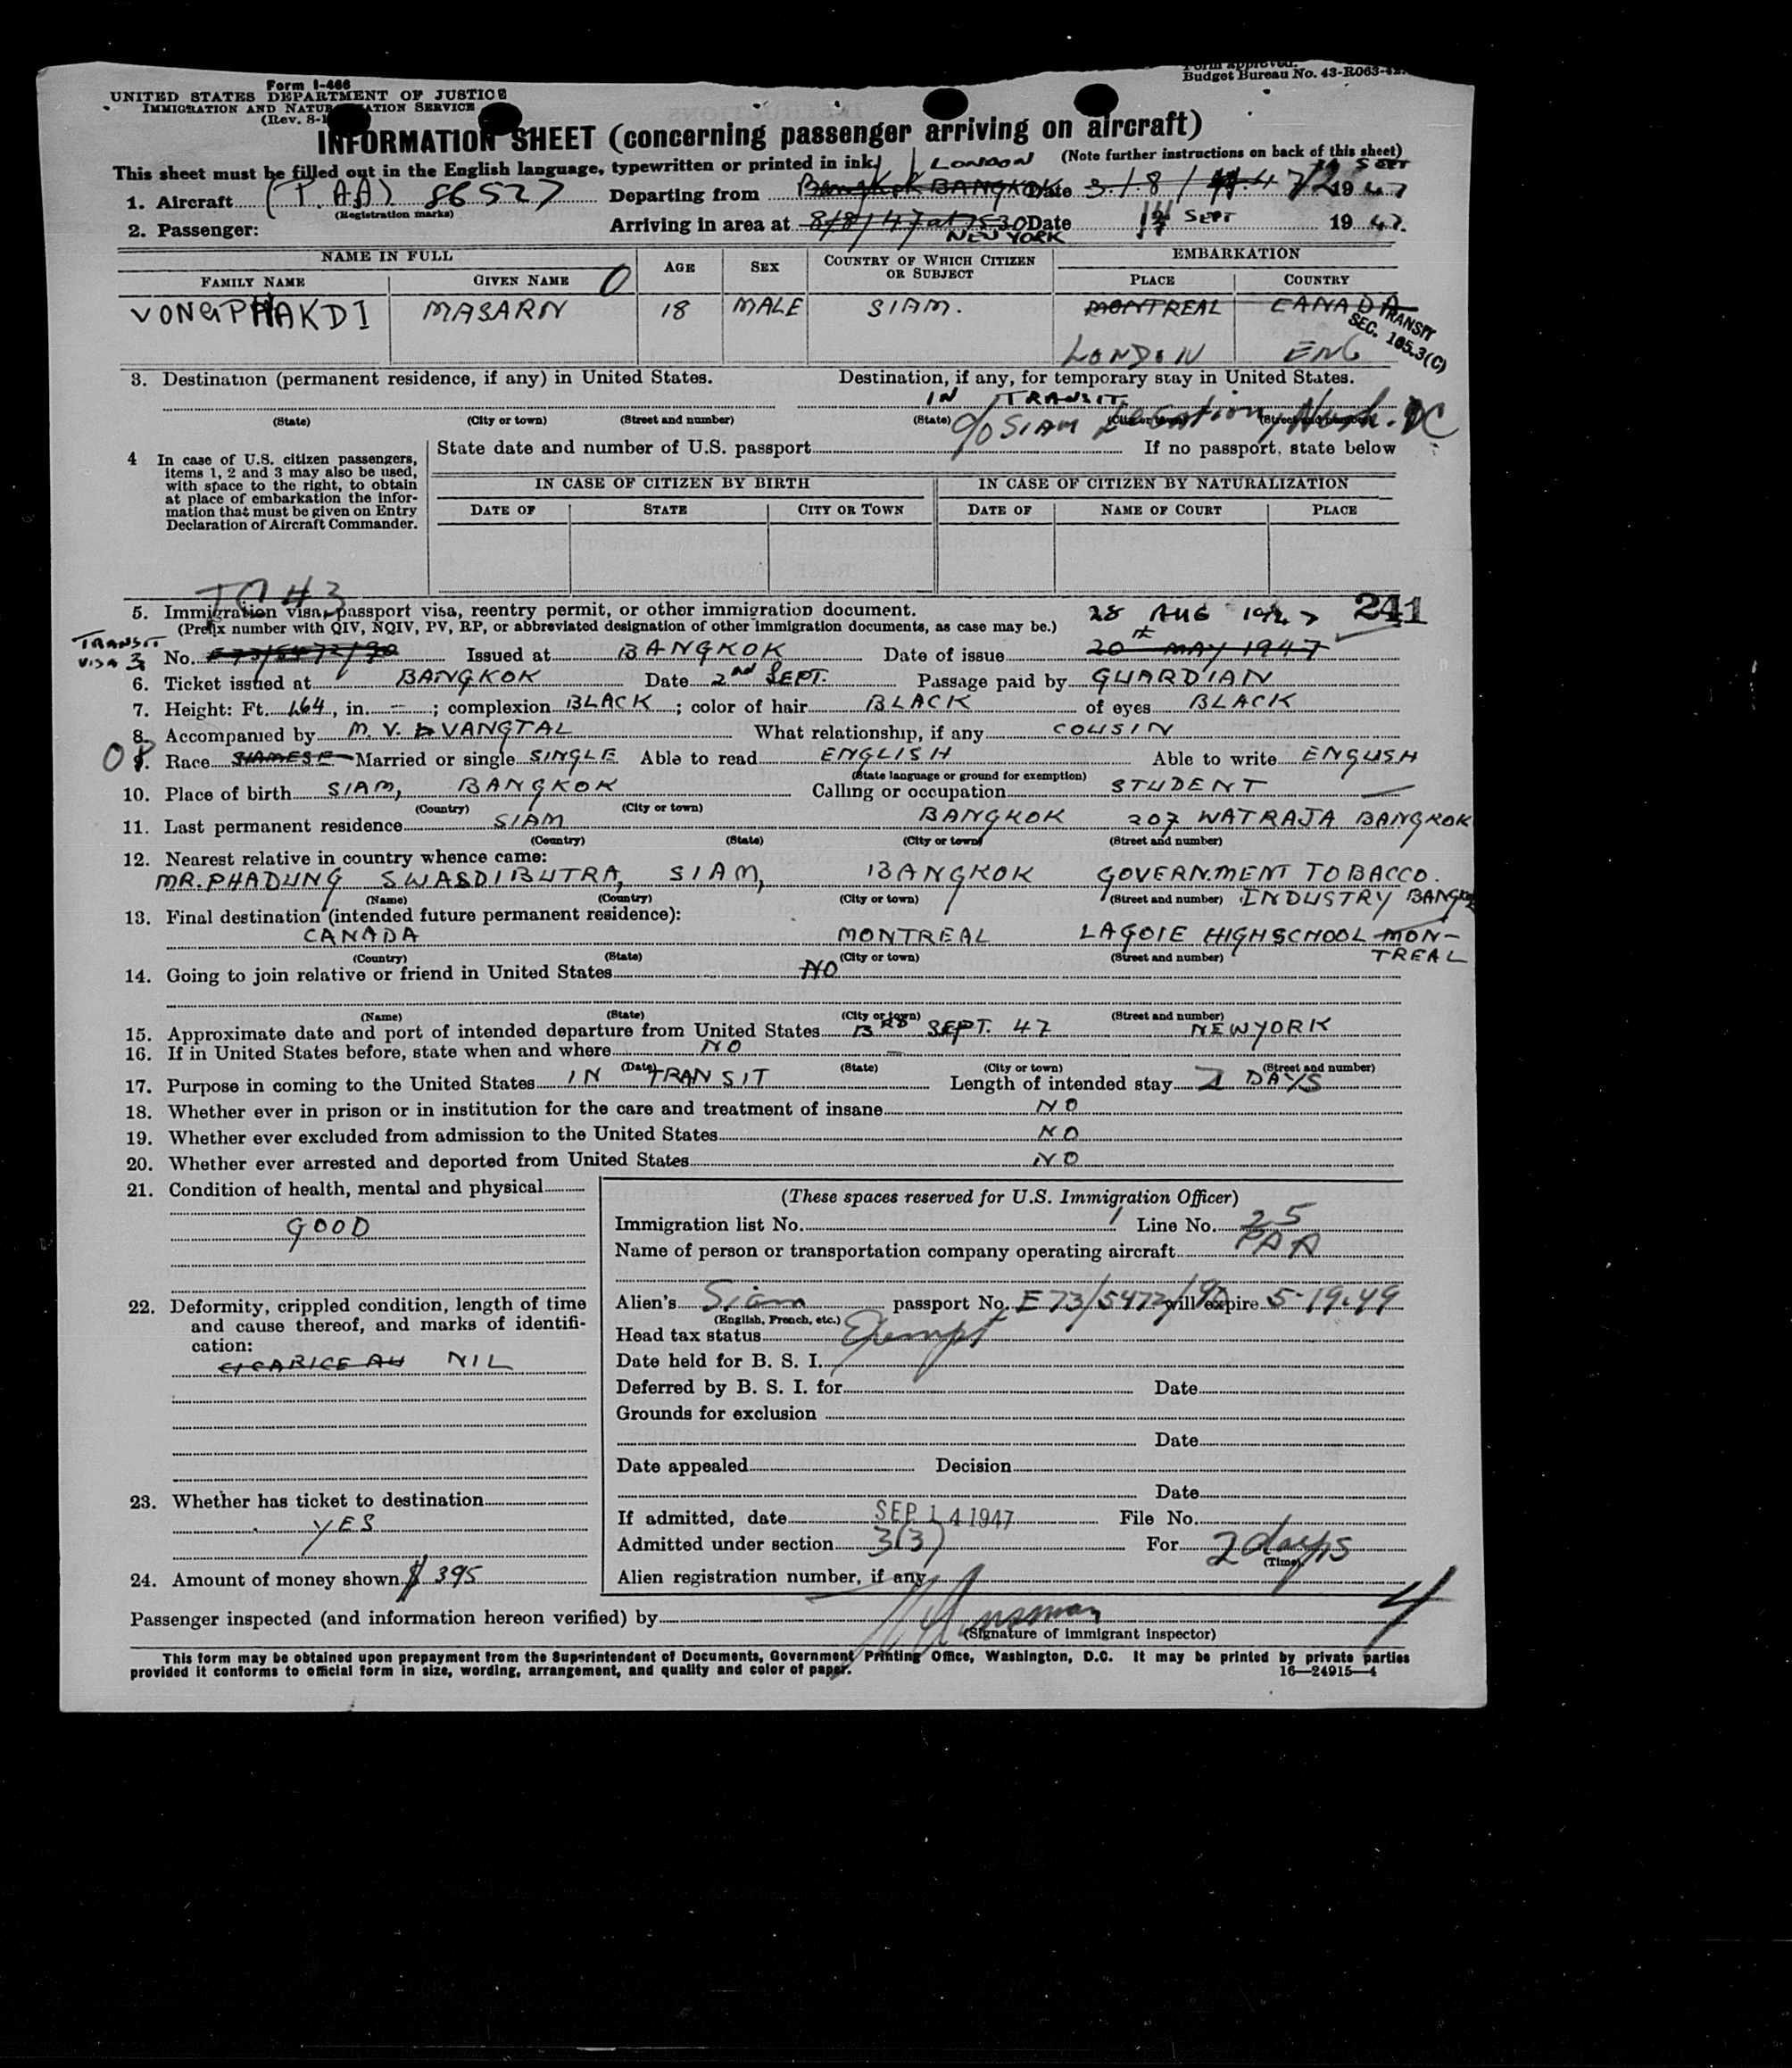 Form I-466
Budget Bureau No. 43-R063
UNITED STATES DEPARTMENT OF JUSTICE
IMMIGRATION AND NATURALIZATION SERVICE
(Rev. 8-1
INFORMATION SHEET (concerning passenger arriving on aircraft)
This sheet must be filled out in the English language, typewritten or printed in ink. LONDON (Note further instructions on back of this sheet)
1. Aircraft (P.AA) 86527 Departing from Bangkok BANGKOK Date 3/8/ 47 12 SEPT 1947
(Registration marks)
2. Passenger: Arriving in area at 8/8/47 at 7530 Date 14 SEPT 1947.
NEW YORK
NAME IN FULL AGE SEX COUNTRY OF WHICH CITIZEN OR SUBJECT EMBARKATION
FAMILY NAME GIVEN NAME O PLACE COUNTRY
VONGPHAKDI MASARN 18 MALE SIAM. MONTREAL CANADA
TRANSIT SEC. 165.3(C)
LONDON ENG
3. Destination (permanent residence, if any) in United States. Destination, if any, for temporary stay in United States.
IN TRANSIT
(State) (City or town) (Street and number) (State) (City or town) (Street and number)
c/o SIAM Legation, Wash. DC
State date and number of U.S. passport If no passport, state below
4 In case of U.S. citizen passengers,
items 1, 2 and 3 may also be used,
with space to the right, to obtain
at place of embarkation the infor-
mation that must be given on Entry
Declaration of Aircraft Commander.
IN CASE OF CITIZEN BY BIRTH IN CASE OF CITIZEN BY NATURALIZATION
DATE OF STATE CITY OR TOWN DATE OF NAME OF COURT PLACE
5. Immigration visa, passport visa, reentry permit, or other immigration document. 28 AUG 1947 241
(Prefix number with QIV, NQIV, PV, RP, or abbreviated designation of other immigration documents, as case may be.)
TRANSIT VISA 3 No. E73/5472/90 Issued at BANGKOK Date of issue 20th MAY 1947
6. Ticket issued at BANGKOK Date 2nd SEPT. Passage paid by GUARDIAN
7. Height: Ft. 1.64, in. – ; complexion BLACK ; color of hair BLACK of eyes BLACK
8. Accompanied by M. V. VANGTAL What relationship, if any COUSIN
9. Race SIAMESE Married or single SINGLE Able to read ENGLISH Able to write ENGLISH
(State language or ground for exemption)
10. Place of birth SIAM, BANGKOK Calling or occupation STUDENT
(Country) (City or town)
11. Last permanent residence SIAM BANGKOK 207 WATRAJA BANGKOK
(Country) (State) (City or town) (Street and number)
12. Nearest relative in country whence came:
MR. PHADUNG SWASDIBUTRA, SIAM, BANGKOK GOVERNMENT TOBACCO.
(Name) (Country) (City or town) (Street and number) INDUSTRY BANGKOK
13. Final destination (intended future permanent residence):
CANADA MONTREAL LAGOIE HIGHSCHOOL MON-
TREAL
(Country) (State) (City or town) (Street and number)
14. Going to join relative or friend in United States NO
(Name) (State) (City or town) (Street and number)
15. Approximate date and port of intended departure from United States 13RD SEPT. 47 NEWYORK
16. If in United States before, state when and where NO –
(Date) (State) (City or town) (Street and number)
17. Purpose in coming to the United States IN TRANSIT Length of intended stay 2 DAYS
18. Whether ever in prison or in institution for the care and treatment of insane NO
19. Whether ever excluded from admission to the United States NO
20. Whether ever arrested and deported from United States NO
21. Condition of health, mental and physical
GOOD
22. Deformity, crippled condition, length of time
and cause thereof, and marks of identifi-
cation:
NIL
23. Whether has ticket to destination
YES
24. Amount of money shown $ 395
(These spaces reserved for U.S. Immigration Officer)
Immigration list No. 1 Line No. 25
Name of person or transportation company operating aircraft PAA
Alien's Siam passport No. E73/5472/90 will expire 5-19-49
(English, French, etc.)
Head tax status Exempt
Date held for B. S. I.
Deferred by B. S. I. for Date
Grounds for exclusion
Date
Date appealed Decision
Date
If admitted, date SEP 14 1947 File No.
Admitted under section 3(3) For 2 days
(Time)
Alien registration number, if any
Passenger inspected (and information hereon verified) by 4
(Signature of immigrant inspector)
This form may be obtained upon prepayment from the Superintendent of Documents, Government Printing Office, Washington, D.C. It may be printed by private parties
provided it conforms to official form in size, wording, arrangement, and quality and color of paper. 16—24915—4